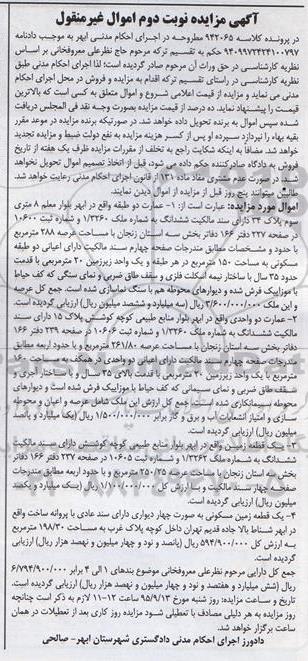 آگهی مزایده نوبت دوم اموال غیرمنقول
در پرونده کلاسه ۹۴۲۰۶۵ مطروحه در اجرای احکام مدنی ابهر به موجب دادنامه
۹۴۰۹۹۷۲۴۲۴۱۰۰۷۹۷ حکم به تقسیم ترکه مرحوم حاج نظرعلی معروفخانی بر اساس
نظریه کارشناسی در حق وراث آن مرحوم صادر گردیده است؛ لذا اجرای احکام مدنی طبق
نظریه کارشناسی در راستای تقسیم ترکه اقدام به مزایده و فروش در محل اجرای احکام
مدنی می نماید و مزایده از قیمت اعلامی شروع و اموال متعلق به کسی است که بالاترین
قیمت را پیشنهاد نماید. ده درصد از قیمت مزایده بصورت وجه نقد فی المجلس دریافت
شده سپس اموال به برنده تحویل داده خواهد شد. در صورتیکه برنده مزایده در موعد مقرر
بقیه بهاء را نپردازد سپرده او پس از کسر هزینه مزایده به نفع دولت ضبط و مزایده تجدید
خواهد شد. مضافا به اینکه شکایت راجع به تخلف از مقررات مزایده ظرف یک هفته از تاریخ
فروش به دادگاه صادرکننده حکم داده می شود، قبل از اتخاذ تصمیم اموال تحویل نخواهد
شد. در صورت عدم مشتری مفاد ماده ۱۳۱ از قانون اجرای احکام مدنی رعایت خواهد شد.
طالبین میتوانند پنج روز قبل از مزایده از اموال دیدن نمایند.
اموال مورد مزایده: عبارت است از: ۱- عمارت دو طبقه واقع در ابهر بلوار معلم ۸ متری
سوم پلاک ۳۴ دارای سند مالکیت ششدانگ به شماره ملک ۱/۳۲۶۰ و شماره ثبت ۱۰۶۰۰
صفحه ۲۲۷ دفتر ۱۶۶ دفاتر بخش سه استان زنجان با مساحت عرصه ۲۸۸ مترمربع
با حدود و مشخصات مطابق مندرجات صفحه چهارم سند مالکیت دارای اعیانی دو طبقه
مسکونی به مساحت ۱۵۰ مترمربع در هر طبقه و یک واحد زیرزمین ۲۰ مترمربع با قدمت
حدود ۲۵ سال با ساختار نیمه اسکلت فلزی و سقف طاق ضربی و نمای سنگی که کف حیاط
با موزاییک فرش شده و دیوارهای محوطه هم با سنگ نماسازی شده است. جمع کل عرصه
و این ملک ۳/۶۰۰/۰۰۰/۰۰۰ ریال (سه میلیارد و ششصد میلیون ریال) ارزیابی گردیده است.
۲- عمارت دو واحدی واقع در ابهر بلوار منابع طبیعی کوچه کوشش پلاک ۱۵ دارای سند
مالکیت ششدانگ به شماره ملک ۱/۳۲۶۰ و شماره ثبت ۱۰۶۰۶ در صفحه ۲۳۹ دفتر ۱۶۶
دفاتر بخش سه استان زنجان با مساحت عرصه ۲۶۱/۸۰ مترمربع و با حدود اربعه مطابق
مندرجات صفحه چهارم سند مالکیت دارای اعیانی دو واحدی در همکف به مساحت ۱۶۰
مترمربع با یک واحد زیرزمین ۲۰ مترمربعی با قدمت بالای ۲۵ سال با ساختار آجری و
سقف طاق ضربی و نمای سیمانی که کف حیاط با موزاییک فرش شده است و دیوارهای
محوطه سیمانکاری شده است. جمع کل ارزش این ملک شامل عرصه و اعیان و محوطه
سازی و امتیاز انشعابات آب و برق و گاز برابر ۱/۵۰۰/۰۰۰/۰۰۰ ریال (یک میلیارد و پانصد
میلیون ریال) ارزیابی گردیده است.
۳- یک قطعه زمین واقع در ابهر بلوار منابع طبیعی کوچه کوشش دارای سند مالکیت
ششدانگ به شماره ملک ۱/۳۲۶۲ و شماره ثبت ۱۰۶۰۵ در صفحه ۲۳۷ دفتر ۱۶۶ دفاتر
بخش سه استان زنجان با مساحت ۲۵۰/۲۵ مترمربع و با حدود اربعه مطابق مندرجات
صفحه چهار سند مالکیت با ارزش کل ۱/۱۰۰/۰۰۰/۰۰۰ ریال (یک میلیارد و یکصد
میلیون ریال) ارزیابی گردیده است.
۴- یک قطعه زمین مسکونی به صورت چهار دیواری دارای سند عادی با پروانه ساخت واقع
در ابهر شناط بالا جاده قدیم تهران داخل کوچه پلاک غرب به مساحت ۱۹۸/۳۰ مترمربع
به ارزش کل ۵۹۴/۹۰۰/۰۰۰ ریال (پانصد و نود و چهار میلیون و نهصد هزار ریال) ارزیابی
گردیده است.
جمع کل دارایی مرحوم نظرعلی معروفخانی موضوع بندهای ۱ الی ۴ برابر ۶/۷۹۴/۹۰۰/۰۰۰
ریال (شش میلیارد و هفتصد و نود و چهار میلیون و نهصد هزار ریال) ارزیابی گردیده است.
تاریخ و ساعت مزایده: روز شنبه مورخ ۹۵/۹/۱۳ ساعت ۱۲-۱۱ لازم به ذکر است چنانچه
روز مزایده به هر دلیلی مصادف با تعطیلی شود مزایده روز کاری بعد از تعطیلات در همان
ساعت برگزار خواهد شد.
دادورز اجرای احکام مدنی دادگستری شهرستان ابهر- صالحی